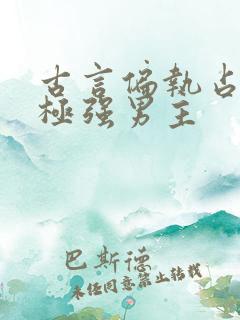 古言偏执占
極强男主
巴斯德
未经同意禁止转载